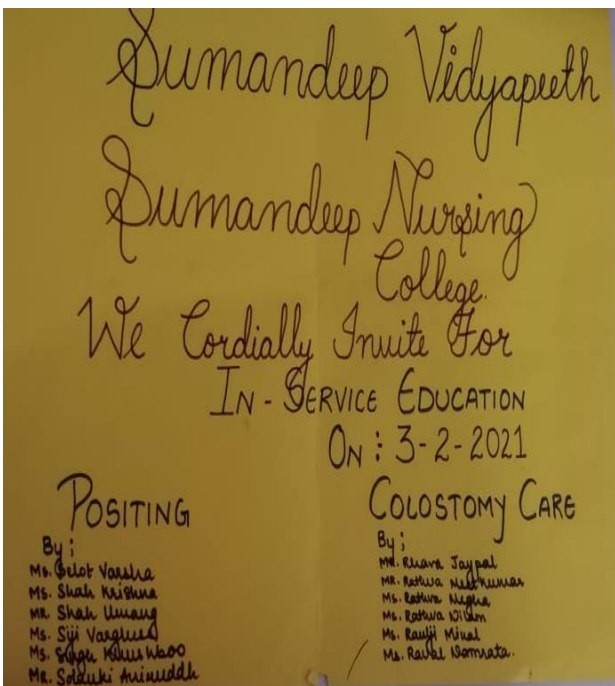 Sumandeep Vidyapeeth
Sumandeep Nursing
College.
We Cordially Invite For
IN-SERVICE EDUCATION
ON : 3-2-2021
POSITING
By ;
Ms. Gelot Varsha
Ms. Shah Krishna
MR Shah Umang
Ms. Siji Varghese
Ms. Singh
MR. Solanki Aniruddh
COLOSTOMY CARE
By ;
MR. Jaypal
MR. Rathva Meetkumar
Ms. Rathva Megha
Ms. Rathva
Ms. Raulji Minal
Ms. Raval Namrata.